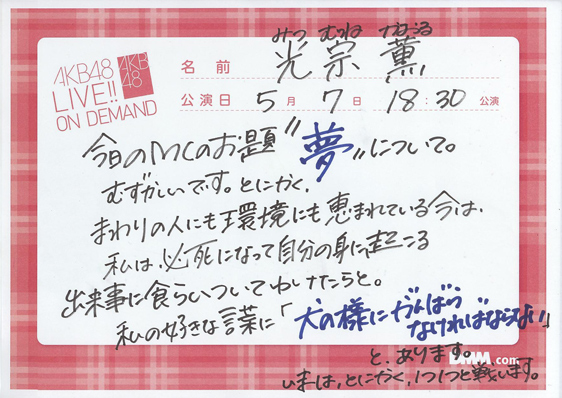 みつ むね かおる
AKB48
LIVE!!
ON DEMAND
AKB
48
名前 光宗 薫
公演日 5月 7日 18:30 公演
今日のMCのお題"夢"について。
むずかしいです。とにかく、
まわりの人にも環境にも恵まれている今は、
私は、必死になって自分の身に起こる
出来事に食らいついていけたらと。
私の好きな言葉に「犬の様にがんばら
なければならない」
と、あります。
DMM.com
いまは、とにかく、1つ1つと戦います。